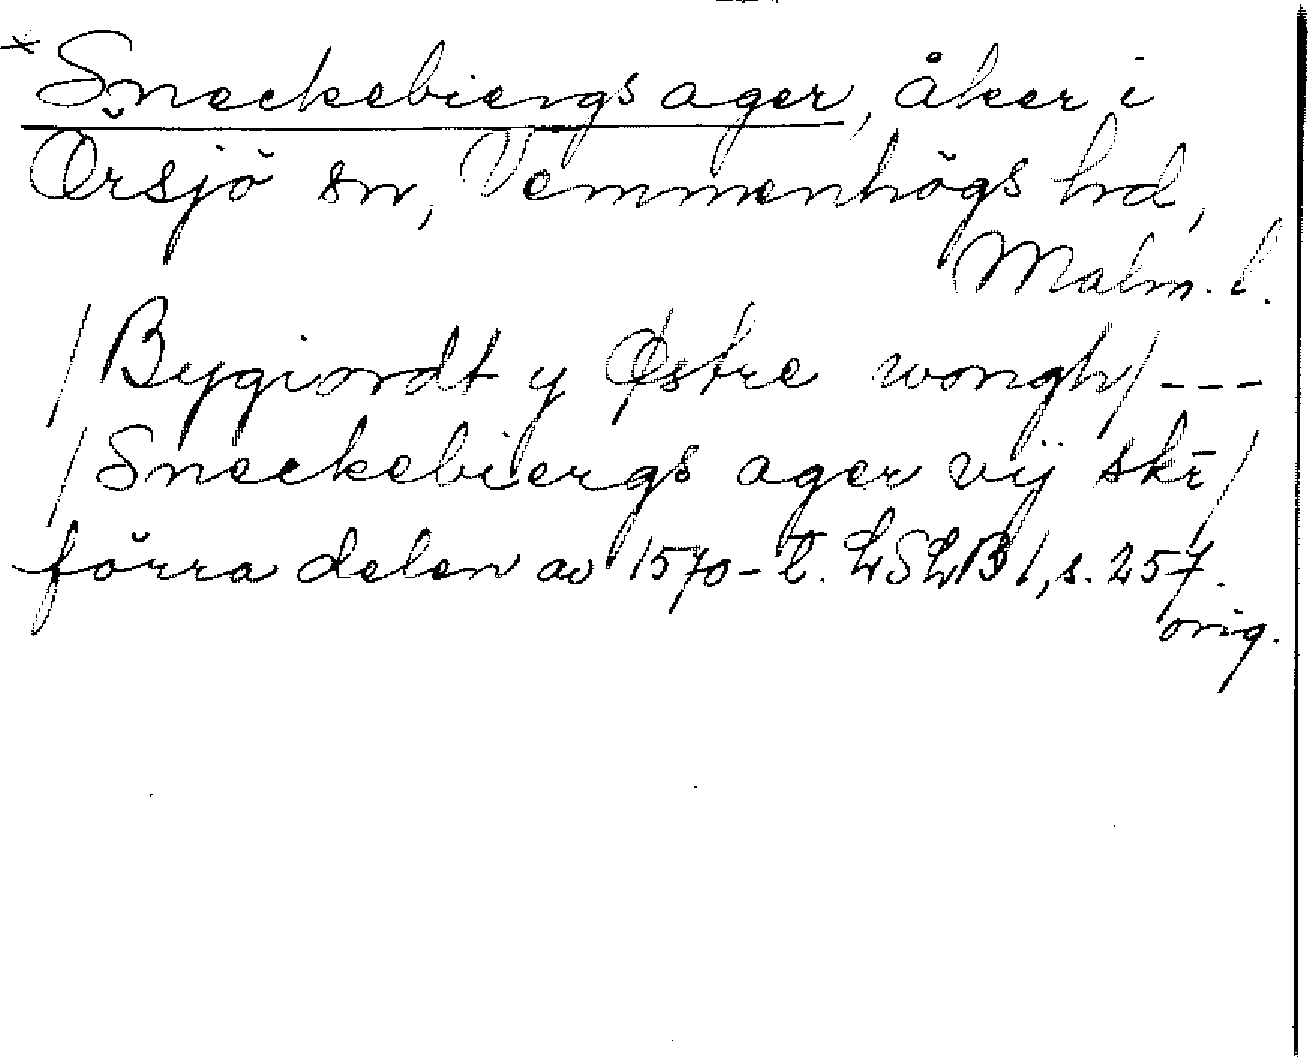 * Sneckebiergs ager, åker i
Örsjö sn, Vemmenhögs hd,
Malm. l.
/Bygiordt y Østre wongh/ ---
/Sneckebiergs ager vij skr̄/
förra delen av 1570-t. LSLB 1, s. 257.
orig.